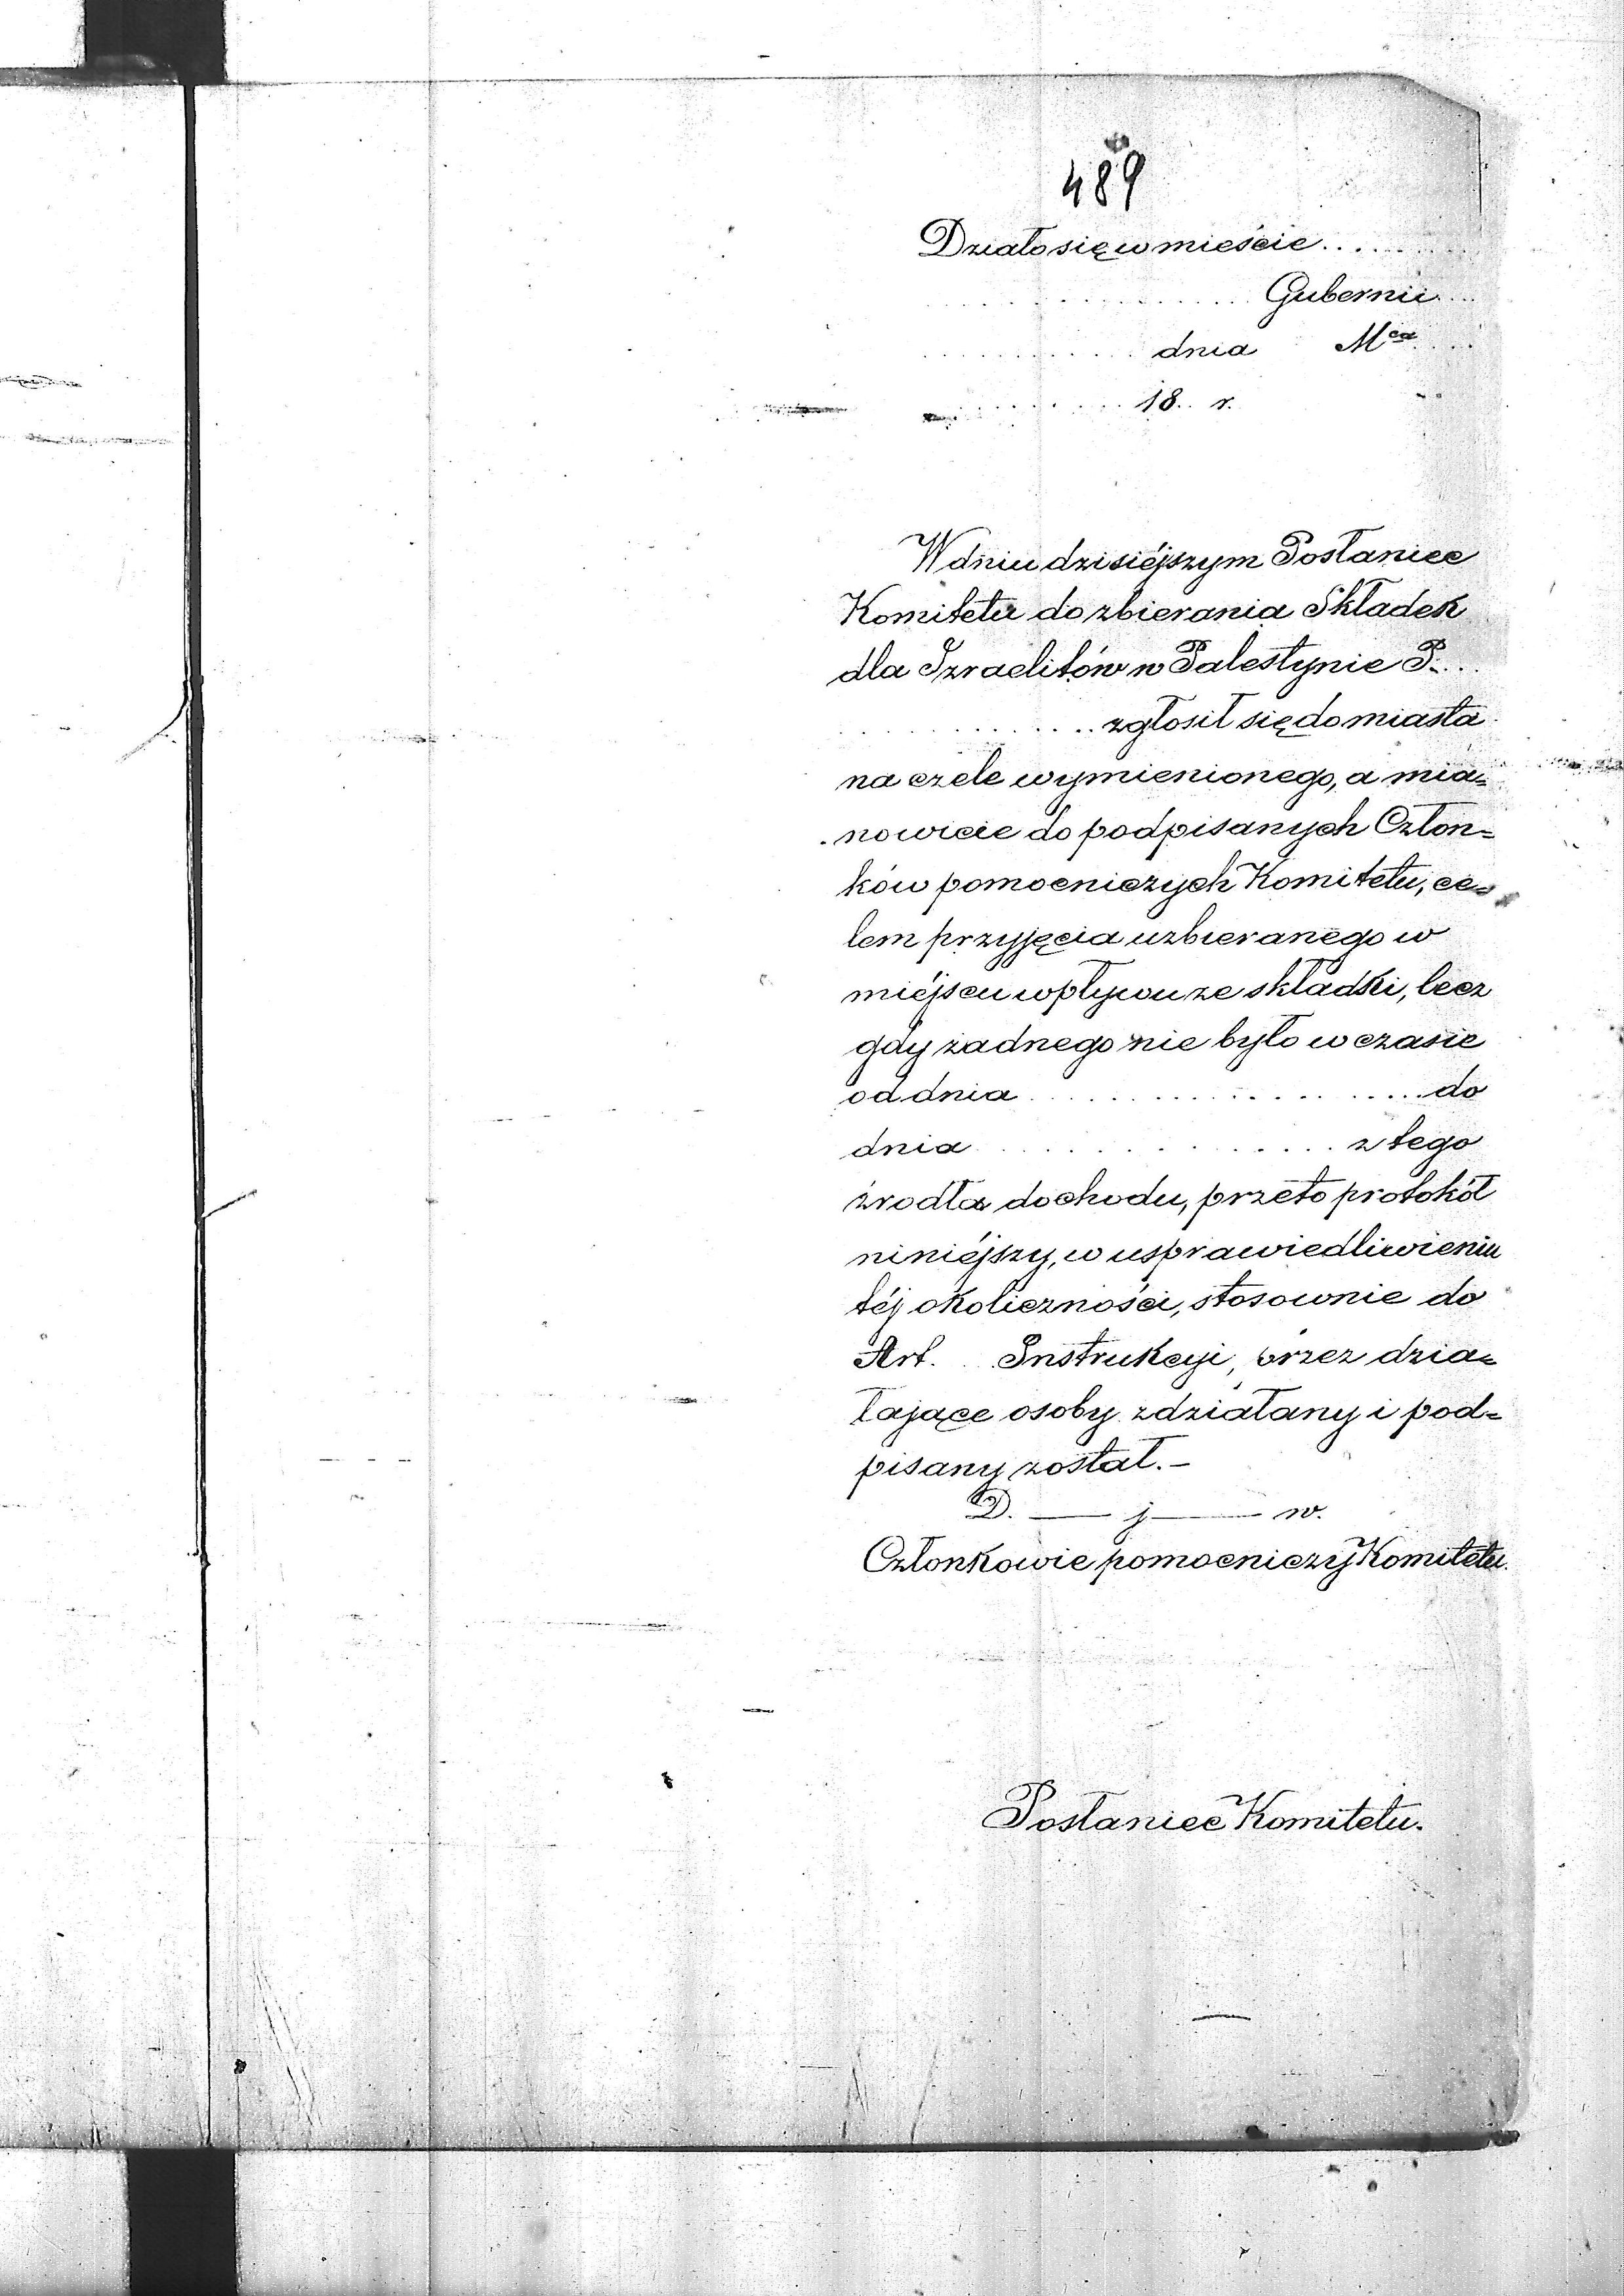 489
Działo się w mieście . . . . . .
. . . . . . . . . . . . Gubernii . . .
. . . . . . . . . dnia Mca . . .
. . . . . . . . 18 . . r.
W dniu dzisiéjszym Posłaniec
Komitetu do zbierania Składek
dla Izraelitów w Palestynie P. . . .
. . . . . . . . . . zgłosił się do miasta
na czele wymienionego, a mia=
nowicie do podpisanych Człon=
ków pomocniczych Komitetu, ce=
lem przyjęcia uzbieranego w
miéjscu wpływu ze składki, lecz
gdy żadnego nie było w czasie
od dnia . . . . . . . . . . . . . . do
dnia . . . . . . . . . . . . . z tego
źrodła dochodu, przeto protokół
niniéjszy, w usprawiedliwieniu
téj okoliczności, stosownie do
Art. . . Instrukcyi, przez dzia=
łające osoby zdziałany i pod=
pisany został. –
D. — j — w.
Członkowie pomocniczy Komitetu.
Posłaniec Komitetu.